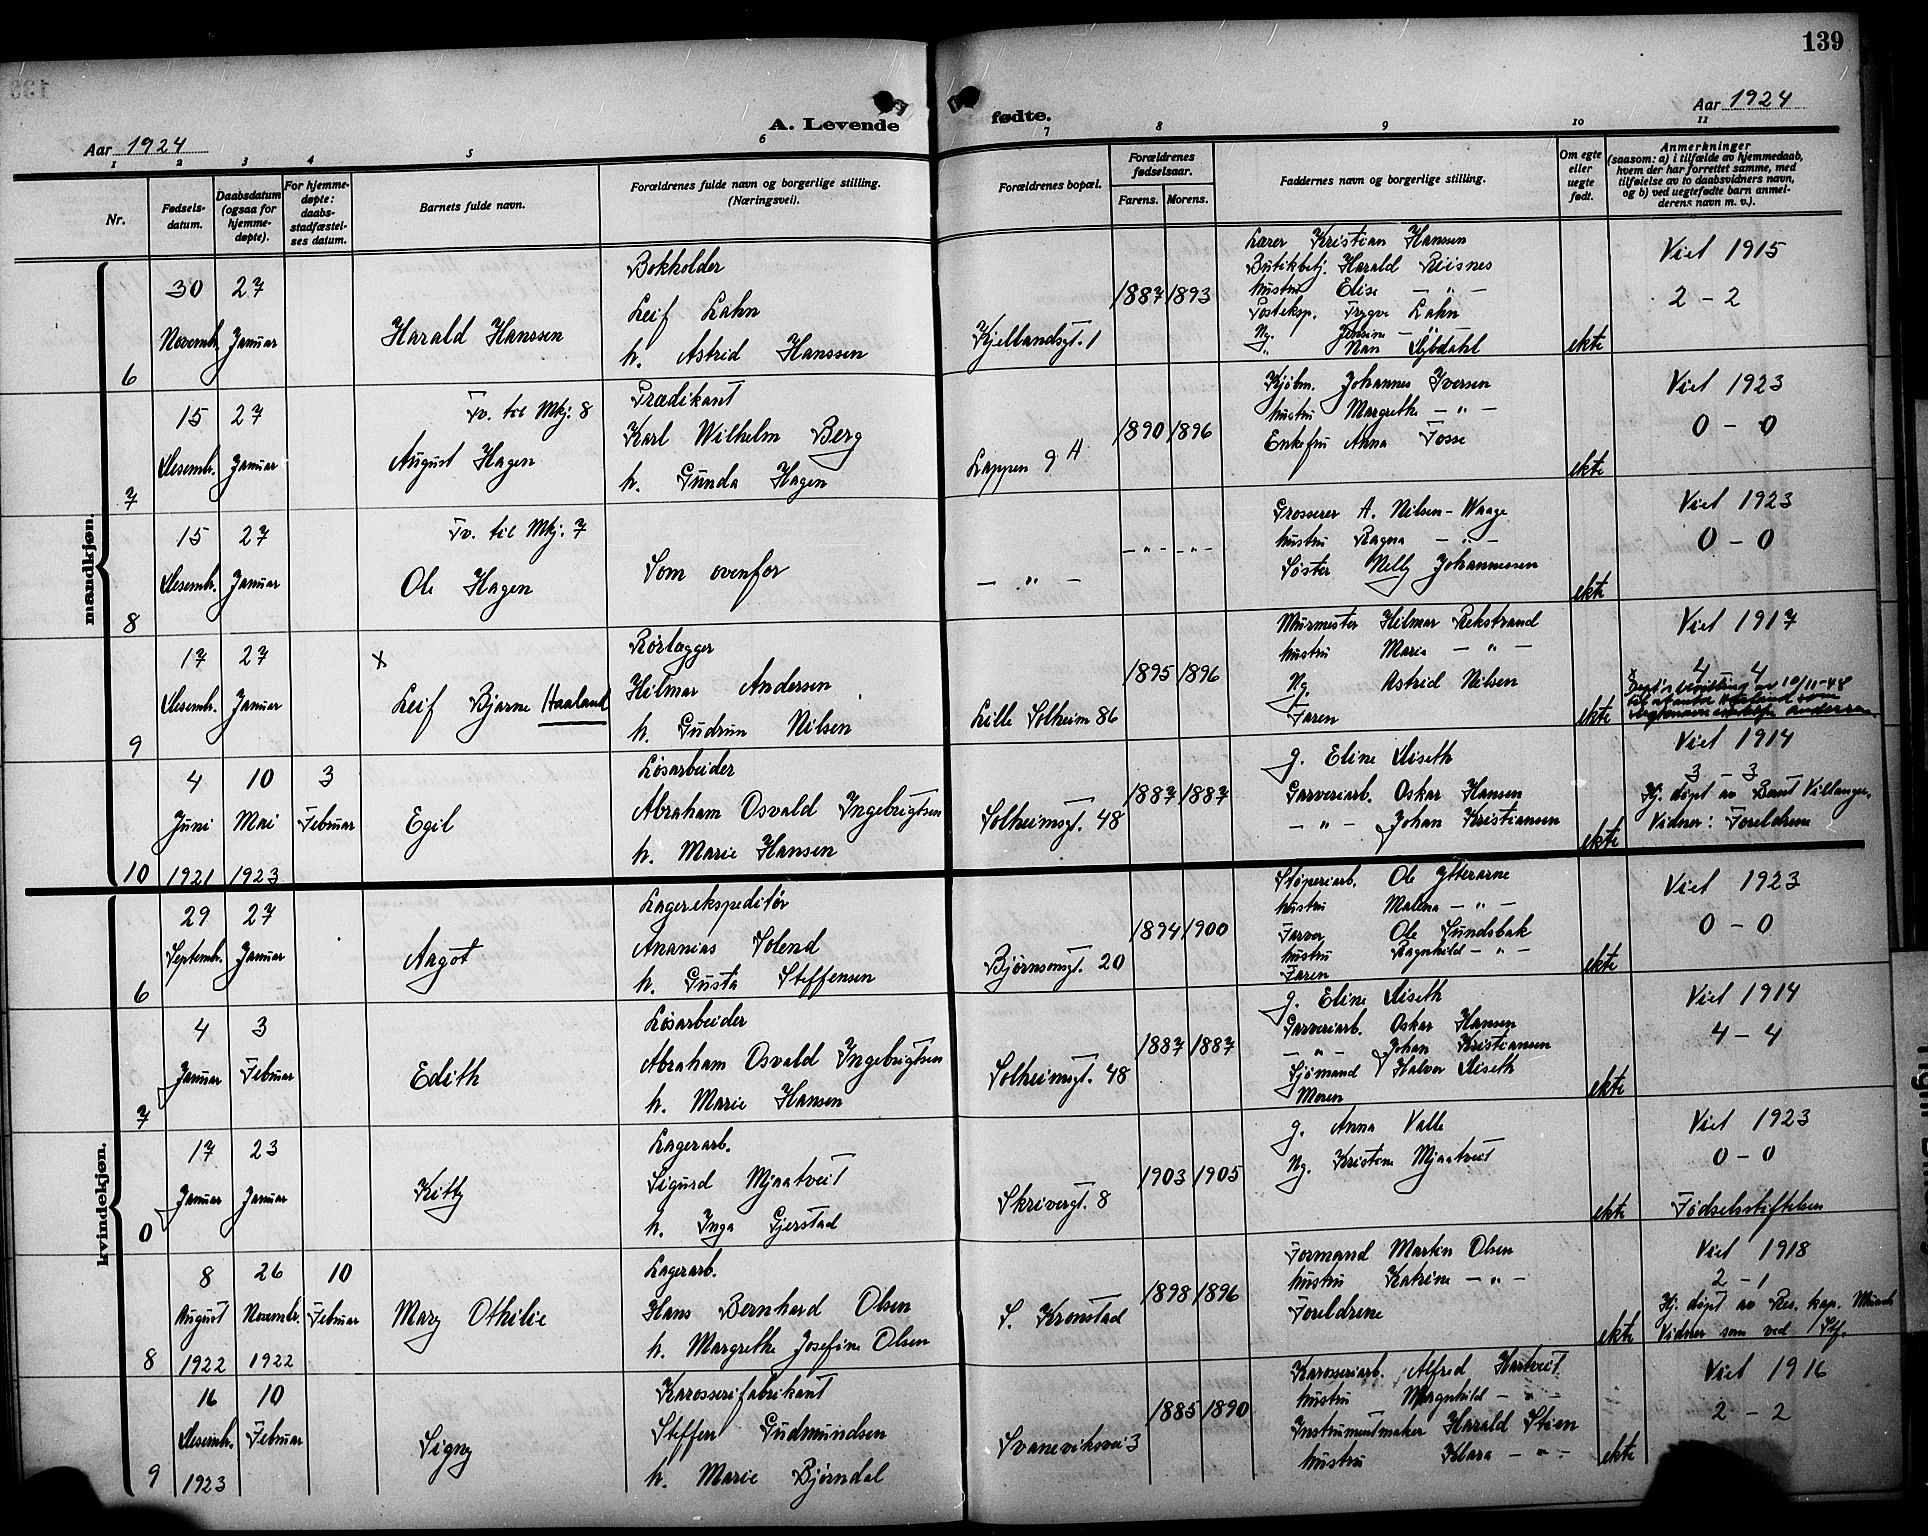 139
Aar 1924
A. Levende fødte.
Aar 1924
1 2 3 4 5 6 7 8 9 10 11
Nr.
Fødsels-
datum.
Daabsdatum
(ogsaa for
hjemme-
døpte).
For hjemme-
døpte:
daabs-
stadfæstel-
ses datum.
Barnets fulde navn.
Forældrenes fulde navn og borgerlige stilling.
(Næringsvei).
Forældrenes bopæl.
Forældrenes
fødselsaar.
Farens. Morens.
Faddernes navn og borgerlige stilling.
Om egte
eller
uegte
født.
Anmerkninger
(saasom: a) i tilfælde av hjemmedaab,
hvem der har forrettet samme, med
tilføielse av to daabsvidners navn,
og b) ved uegtefødte barn anmel-
derens navn m. v.).
mandkjøn.
6
30
Novemb.
27
Januar
Harald Hanssen
Bokholder
Leif Lahn
h. Astrid Hanssen
Kjellandsgt. 1
1887 1893
Lærer Kristian Hansen
Butikbetj. Harald Risnes
hustru Elise — " —
Posteksp. Trygve Lahn
Ng. Jensine —
" Nan
ekte
Viet 1915
2 - 2
7
15
Desemb.
27
Januar
Tv. til Mkj: 8
August Hagen
Prædikant
Karl Wilhelm Berg
h. Gunda Hagen
Lappen 9 A
1890 1896
Kjøbm. Johannes Iversen
hustru Margrethe — " —
Enkefru Anna Fosse
ekte
Viet 1923
0 - 0
8
15
Desemb.
27
Januar
Tv. til Mkj: 7
Ole Hagen
Som ovenfor
— " —
— " — — " —
Grosserer A. Nilsen-Waage
hustru Ragna — " —
Søster Nelly Johannessen
ekte
Viet 1923
0 - 0
9
17
Desemb.
27
Januar
x
Leif Bjarne Haaland
Rørlægger
Hilmar Andersen
h. Gudrun Nilsen
Lille Solheim 86
1895 1896
Murmester Hilmar Rekstrand
hustru Marie — " —
Ng. Astrid Nilsen
Faren
ekte
Viet 1917
4 - 4
10
4
Juni
1921
10
Mai
1923
3
Februar
Egil
Løsarbeider
Abraham Osvald Ingebrigtsen
h. Marie Hansen
Solheimsgt. 48
1887 1887
g. Eline Diseth
Garveriarb. Oskar Hansen
— " — Johan Kristiansen
ekte
Viet 1914
3 - 3
Hj. døpt av Berut Villanger.
Vidner: Foreldrene
kvindekjøn.
6
29
Septemb.
27
Januar
Aagot
Lagerekspeditør
Ananias Solend
h. Gusta Steffensen
Bjørnsonsgt. 20
1894 1900
Støperiarb. Ole Ytterarne
hustru Malena — " —
Farver Ole Sundsbak
hustru Ragnhild — " —
Faren
ekte
Viet 1923
0 - 0
7
4
Januar
3
Februar
Edith
Løsarbeider
Abraham Osvald Ingebrigtsen
h. Marie Hansen
Solheimsgt. 48
1887 1887
g. Eline Diseth
Garveriarb. Oskar Hansen
— " — Johan Kristiansen
Sjømand Halvor Diseth
Moren
ekte
Viet 1914
4 - 4
0
17
Januar
23
Januar
Kitty
Lagerarb.
Sigurd Mjaatveit
h. Inga Gjerstad
Skrivergt. 8
1903 1905
g. Anna Valle
Ng. Kristine Mjaatveit
ekte
Viet 1923
0 - 0
Fødselsstiftelsen
8
8
August
1922
26
Novemb.
1922
10
Februar
Mary Othilie
Lagerarb.
Hans Bernhard Olsen
h. Margrethe Josefine Olsen
S. Kronstad
1898 1896
Formand Martin Olsen
hustru Katrine — " —
Foreldrene
ekte
Viet 1918
2 - 1
Hj. døpt av Res. kap. Munch
Vidner som ved
9
16
Desemb.
1923
10
Februar
Signy
Karosserifabrikant
Steffen Gudmundsen
h. Marie Bjørndal
Svaneviksvei 3
1885 1890
Karosseriarb. Alfred Hartveit
hustru Magnhild — " —
Instrumentmaker Harald Stien
hustru Klara — " —
ekte
Viet 1916
2 - 2